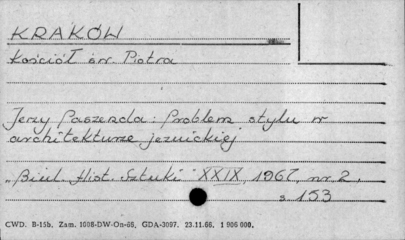 KRAKÓW
Kościół św. Piotra
Jerzy Paszenda: Problem stylu w
architekturze jezuickiej
„Biul. Hist. Sztuki" XXIX, 1967, nr. 2,
s. 153
CWD. B-15b. Zam. 1008-DW-On-66, GDA-3097. 23.11.66. 1 906 000.